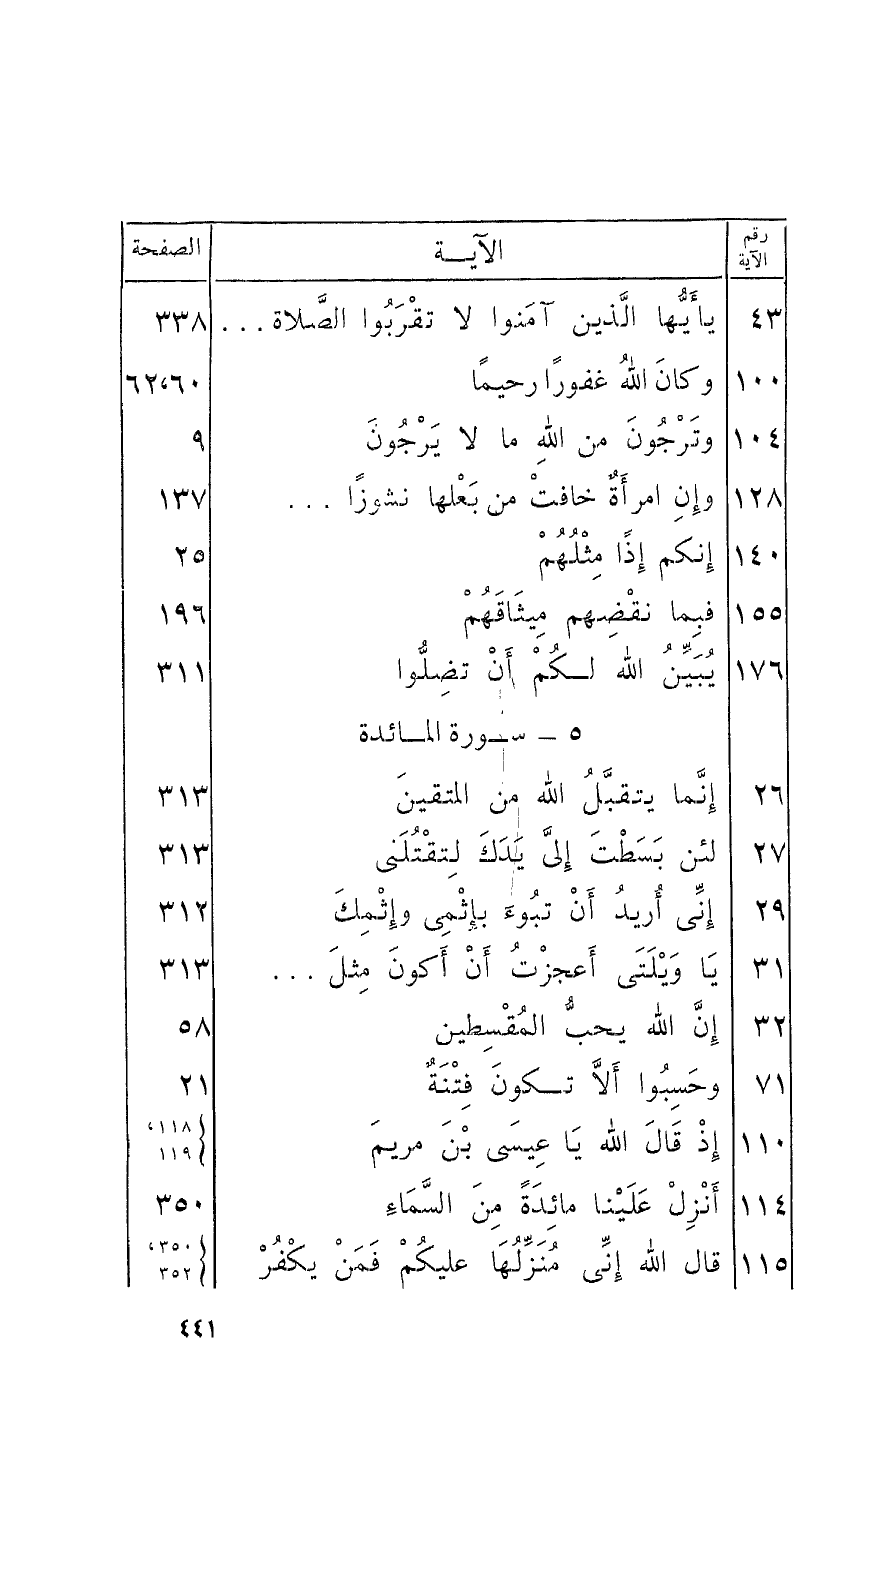 رقم الآية الآيــة الصفحة
٤٣ يأَيُّها الَّذين آمَنوا لا تقْرَبُوا الصَّلاة ... ٣٣٨
١٠٠ وكانَ اللهُ غفورًا رحيمًا ٦٠،٦٢
١٠٤ وتَرْجُونَ من اللهِ ما لا يَرْجُونَ ٩
١٢٨ وإنِ امرأَةٌ خافتْ من بَعْلها نشوزًا ... ١٣٧
١٤٠ إنكم إذًا مِثْلُهُمْ ٢٥
١٥٥ فبِما نقْضِهم مِيثَاقَهُمْ ١٩٦
١٧٦ يُبَيِّنُ الله لــكُمْ أَنْ تضِلُّوا ٣١١
٥ ــ ســورة المــائدة
٢٦ إنَّما يتقبَّلُ الله من المتقينَ ٣١٣
٢٧ لئن بَسَطْتَ إلىَّ يَدَكَ لِتقْتُلَنى ٣١٣
٢٩ إنِّى أُريدُ أَنْ تبُوءَ بإثْمِى وإثْمِكَ ٣١٢
٣١ يَا وَيْلَتَى أَعجزْتُ أَنْ أَكونَ مِثلَ ... ٣١٣
٣٢ إنَّ الله يحبُّ المُقْسِطين ٥٨
٧١ وحَسِبُوا أَلاَّ تــكونَ فِتْنَةٌ ٢١
١١٠ إذْ قَالَ الله يَا عِيسَى بْنَ مريمَ ١١٨، ١١٩
١١٤ أَنْزِلْ عَلَيْنا مائِدَةً مِنَ السَّمَاءِ ٣٥٠
١١٥ قال الله إنِّى مُنَزِّلُهَا عليكُمْ فَمَنْ يكْفُرْ ٣٥٠، ٣٥٢
٤٤١